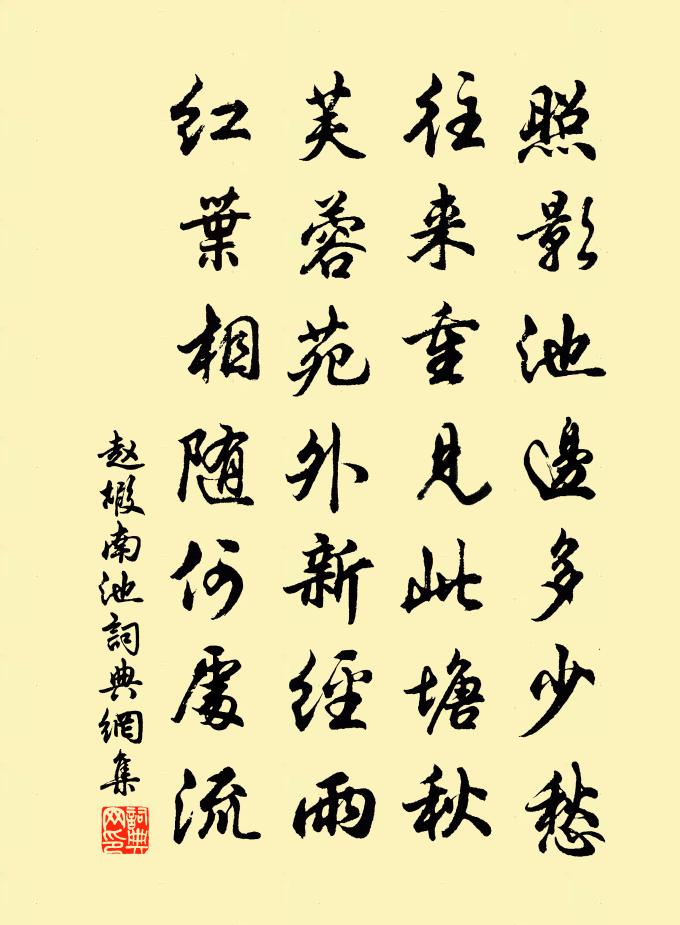 照影池邊多少愁
往来重見此塘秋
芙蓉苑外新經雨
紅葉相随何處流
赵嘏南池詞典網集
詞典網印